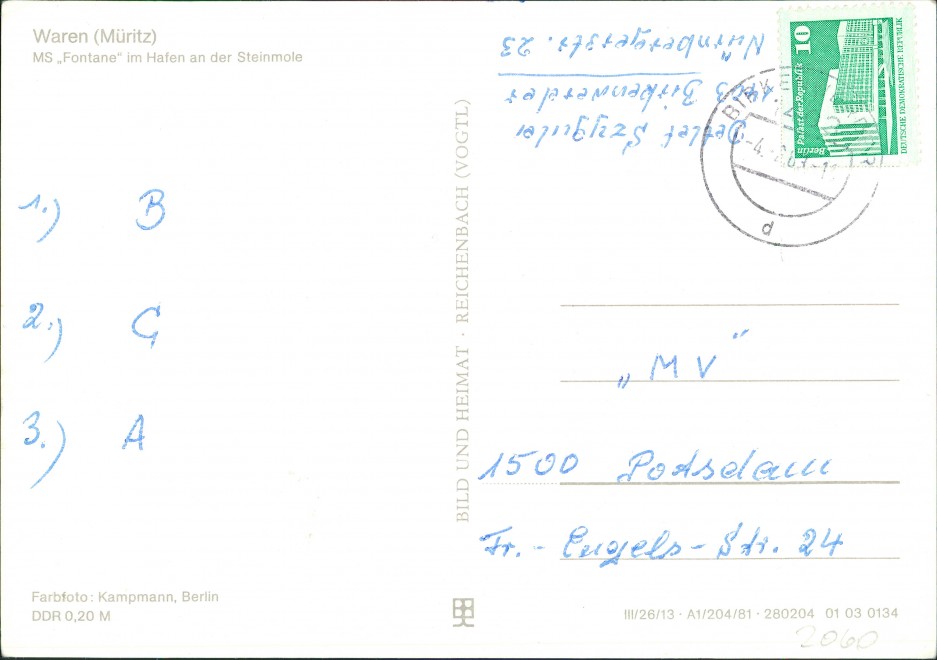 Waren (Müritz)
MS „Fontane“ im Hafen an der Steinmole
1.) B
2.) C
3.) A
Farbfoto: Kampmann, Berlin
DDR 0,20 M
BILD UND HEIMAT · REICHENBACH (VOGTL)
Detlef
Birkenwerder
Nürnbergerstr. 23
10
Palast der Republik
Berlin
DEUTSCHE DEMOKRATISCHE REPUBLIK
d
„MV“
1500 Potsdam
Fr.-Engels-Str. 24
III/26/13 · A1/204/81 · 280204 01 03 0134
2060